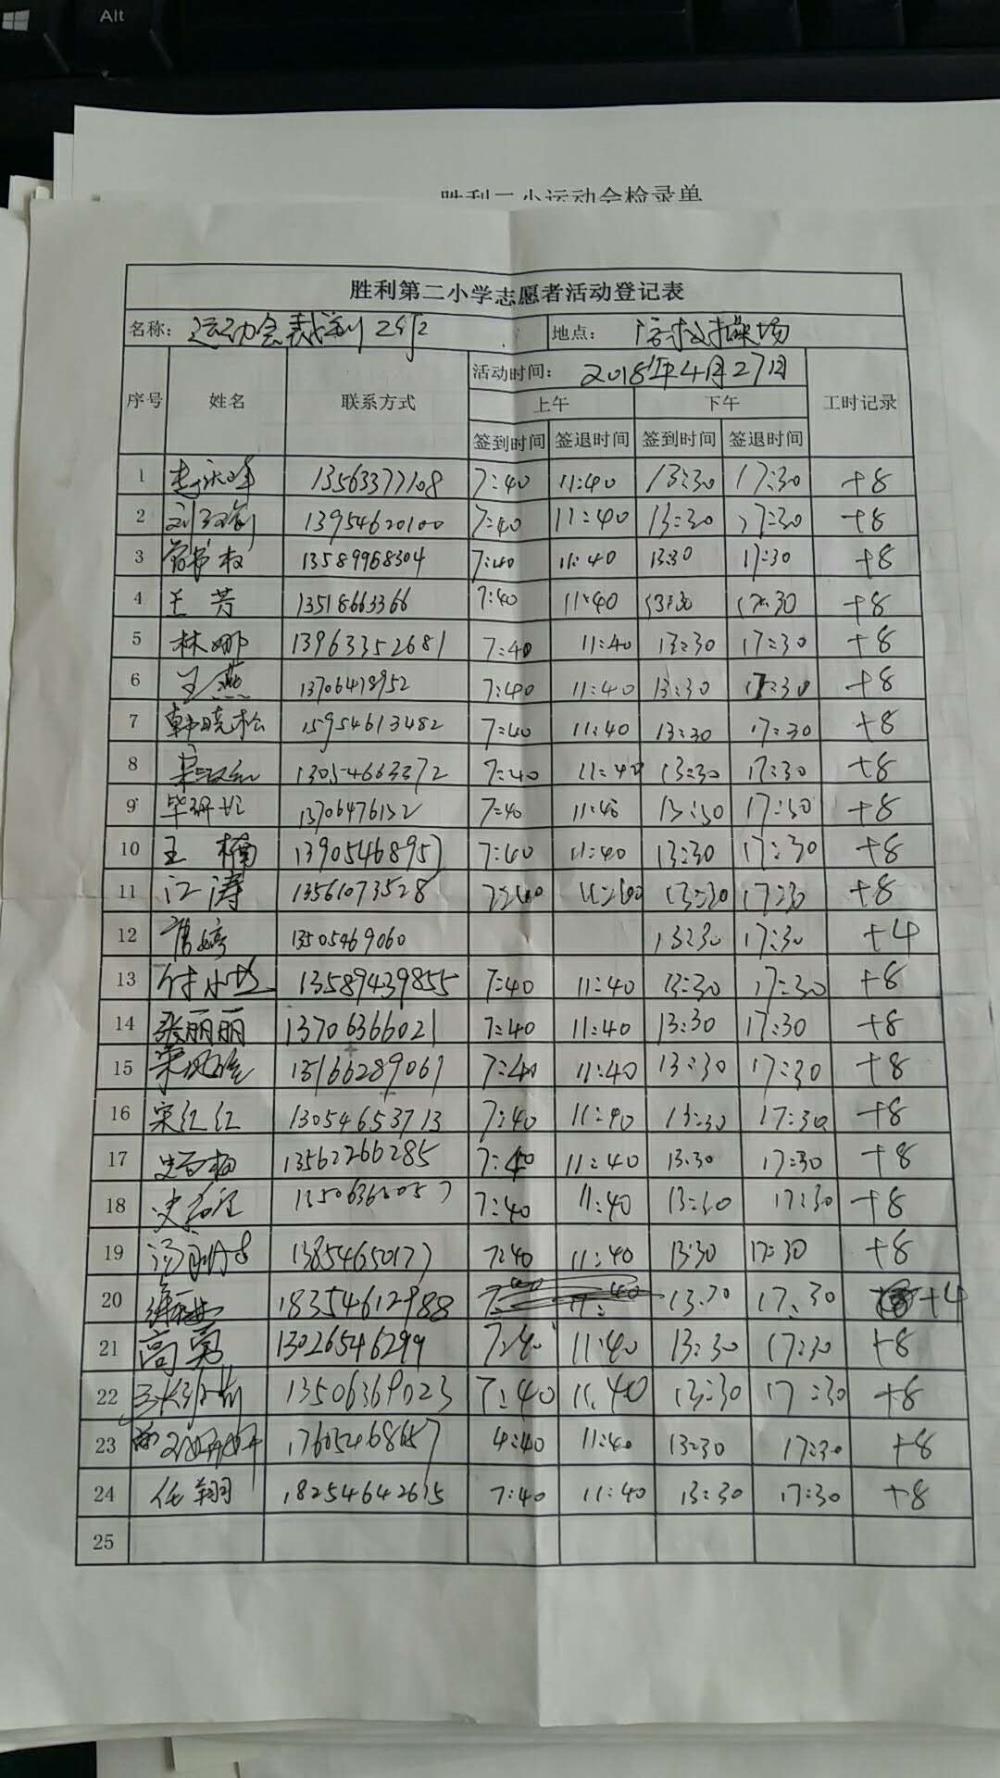 Alt
胜利二小运动会检录单
胜利第二小学志愿者活动登记表
名称： 运动会裁判 地点： 操场
序号 姓名 联系方式 活动时间： 2018年4月27日 工时记录
上午 下午
签到时间 签退时间 签到时间 签退时间
1 13563377108 7:40 11:40 13:30 17:30 +8
2 13954620100 7:40 11:40 13:30 17:30 +8
3 13589968304 7:40 11:40 13:30 17:30 +8
4 王芳 13518663366 7:40 11:40 13:30 17:30 +8
5 林娜 13963352681 7:40 11:40 13:30 17:30 +8
6 王燕 13706418952 7:40 11:40 13:30 17:30 +8
7 韩晓松 15954613482 7:40 11:40 13:30 17:30 +8
8 13054663372 7:40 11:40 13:30 17:30 +8
9 13706476132 7:40 11:40 13:30 17:30 +8
10 王楠 13905468957 7:40 11:40 13:30 17:30 +8
11 江涛 13561073528 7:40 11:40 13:30 17:30 +8
12 13505469060 13:30 17:30 +4
13 13589439855 7:40 11:40 13:30 17:30 +8
14 张丽丽 13706366021 7:40 11:40 13:30 17:30 +8
15 13166289061 7:40 11:40 13:30 17:30 +8
16 宋红红 13054653713 7:40 11:40 13:30 17:30 +8
17 13562266285 7:40 11:40 13:30 17:30 +8
18 7:40 11:40 13:30 17:30 +8
19 13854650177 7:40 11:40 13:30 17:30 +8
20 18354612988 7:40 11:40 13:30 17:30 +4
21 高勇 13026546299 7:40 11:40 13:30 17:30 +8
22 13506369023 7:40 11:40 13:30 17:30 +8
23 17605468657 4:40 11:40 13:30 17:30 +8
24 任翔 18254642615 7:40 11:40 13:30 17:30 +8
25